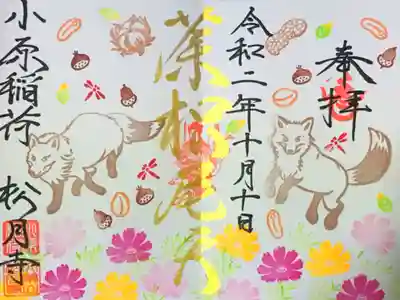 奉拝
令和二年十月十日
茶枳尼天
小原稲荷 松月寺